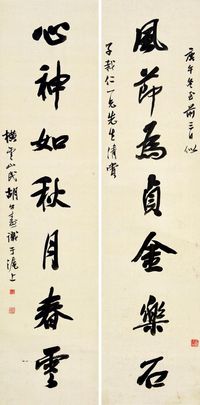 庚午冬至前三日似
風節為貞金樂石
子仁一兄先生清賞
心神如秋月春雲
橫雲山民胡公壽識于滬上